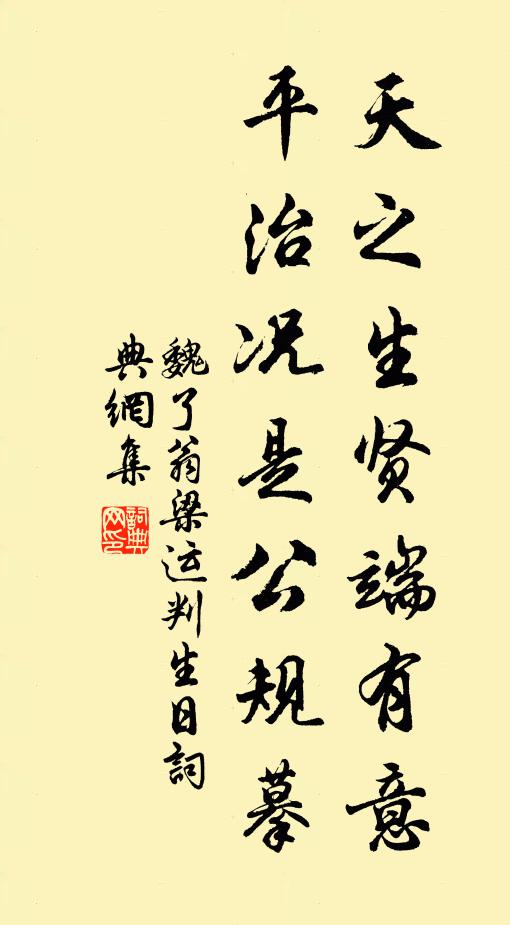 天之生贤端有意
平治况是公规摹
魏了翁梁运判生日詞
典網集
詞典网印